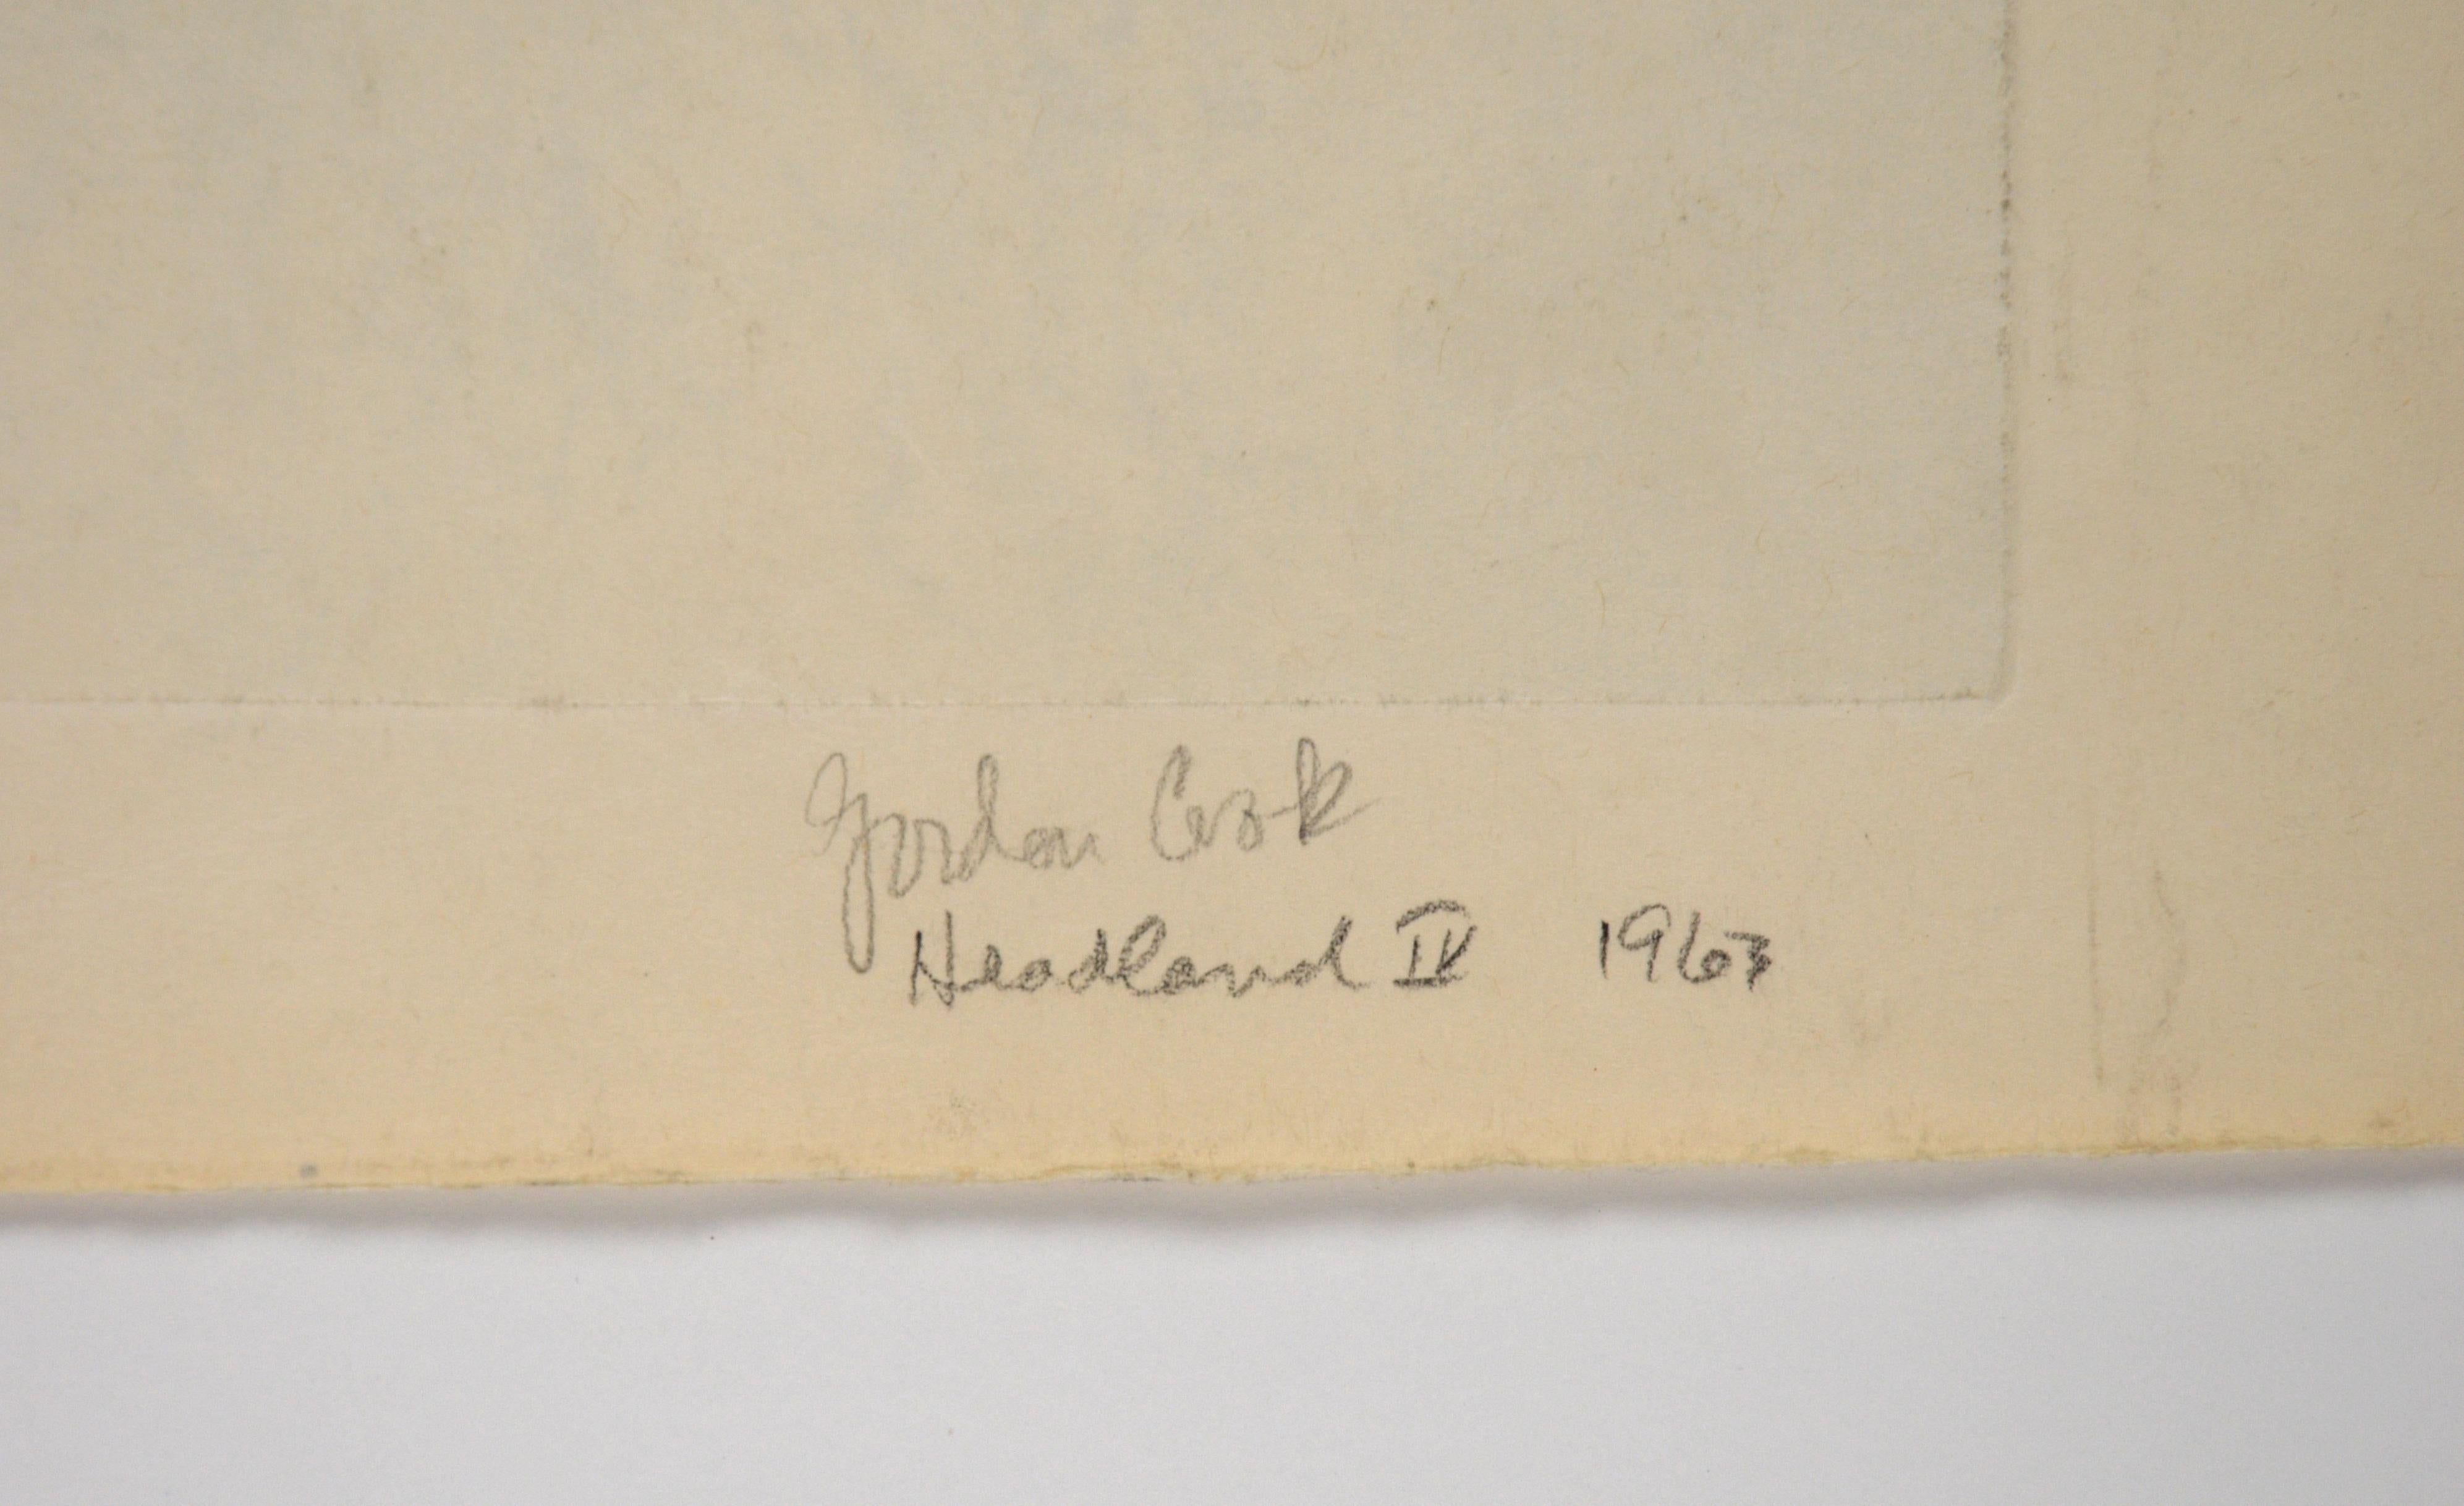 Gordon Cook
Headland IV 1963